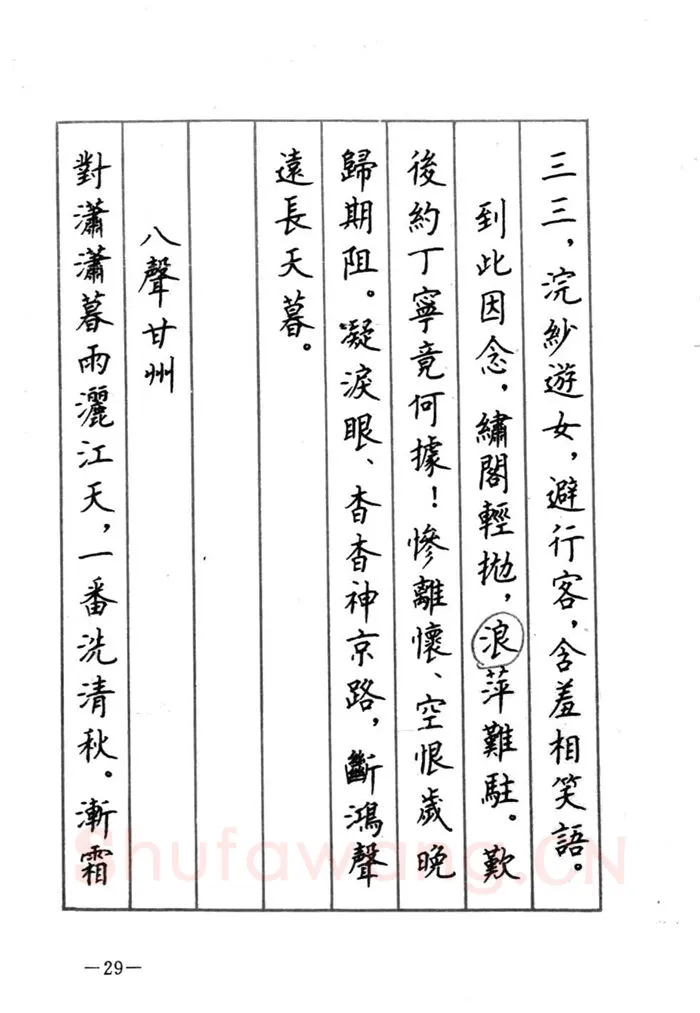 三三，浣紗遊女，避行客，含羞相笑語。
到此因念，繡閣輕拋，浪萍難駐。歎
後約丁寧竟何據！慘離懷、空恨歲晚
歸期阻。凝淚眼、杳杳神京路，斷鴻聲
遠長天暮。
八聲甘州
對瀟瀟暮雨灑江天，一番洗清秋。漸霜
—29—
Shufawang.CN